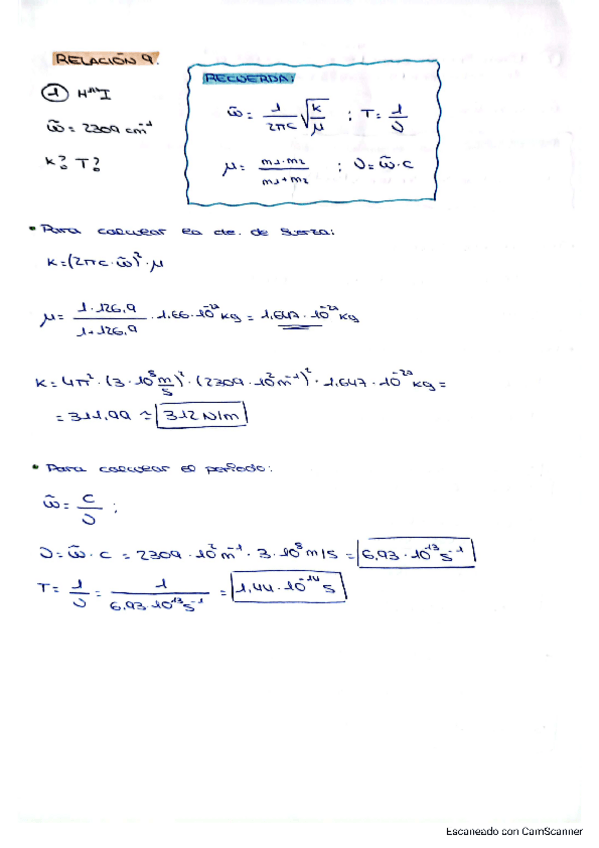 RELACIÓN 9.
① H¹²⁷I
ω̃ = 2309 cm⁻¹
K? T?
RECUERDA:
ω̃ = 1/2πc √K/μ ; T = 1/ν
μ = m1·m2/m1+m2 ; ν = ω̃·c
• Para calcular la cte. de fuerza:
K = (2πc·ω̃)²·μ
μ = 1·126,9/1+126,9 · 1,66·10⁻²⁷ kg = 1,647·10⁻²⁷ kg
K = 4π²·(3·10⁸ m/s)²·(2309·10² m⁻¹)²·1,647·10⁻²⁷ kg =
= 311,99 ≈ 312 N/m
• Para calcular el periodo:
ω̃ = c/ν ;
ν = ω̃·c = 2309·10² m⁻¹·3·10⁸ m/s = 6,93·10¹³ s⁻¹
T = 1/ν = 1/6,93·10¹³ s⁻¹ = 1,44·10⁻¹⁴ s
Escaneado con CamScanner